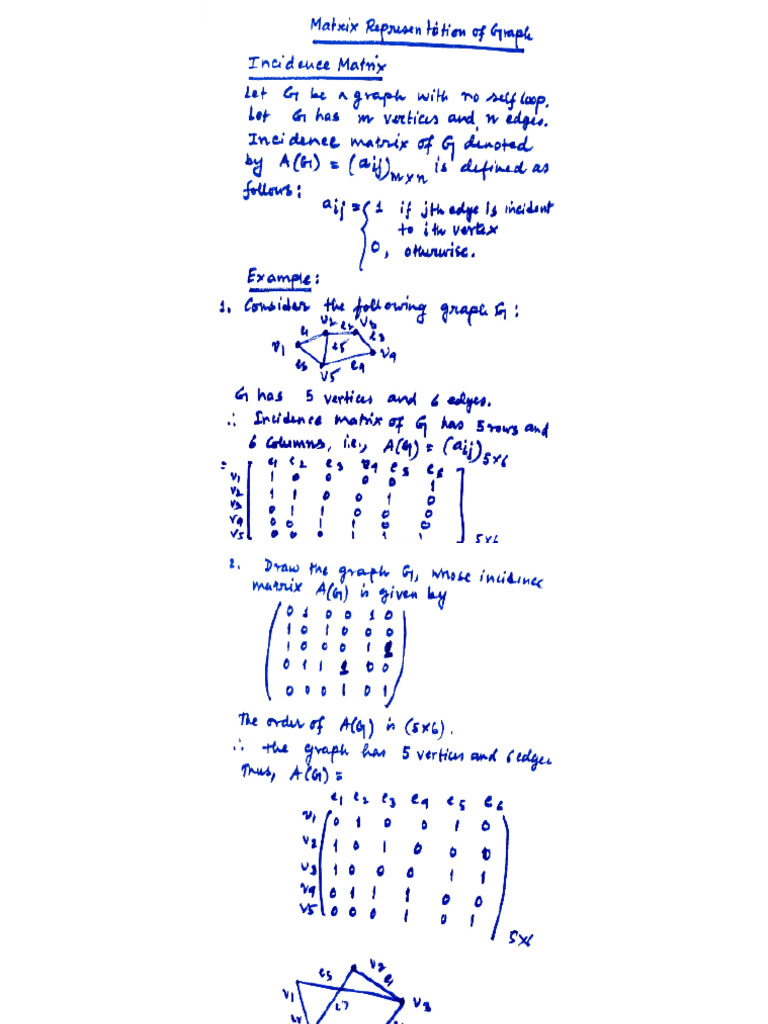 Matrix Representation of Graph
Incidence Matrix
Let G be a graph with no self loop.
Let G has m vertices and n edges.
Incidence matrix of G denoted
by A(G) = (aij)m×n is defined as
follows:
aij = { 1 if jth edge is incident
to ith vertex
0, otherwise.
Example:
1. Consider the following graph G:
v2 e2 v3
e1 e5 e3
v1 v4
e6 e4
v5
G has 5 vertices and 6 edges.
∴ Incidence matrix of G has 5 rows and
6 columns, i.e., A(G) = (aij)5×6
= e1 e2 e3 e4 e5 e6
v1 1 0 0 0 0 1
v2 1 1 0 0 1 0
v3 0 1 1 0 0 0
v4 0 0 1 1 0 0
v5 0 0 0 1 1 1
5×6
2. Draw the graph G, whose incidence
matrix A(G) is given by
0 1 0 0 1 0
1 0 1 0 0 0
1 0 0 0 1 1
0 1 1 1 0 0
0 0 0 1 0 1
The order of A(G) is (5×6).
∴ the graph has 5 vertices and 6 edges
Thus, A(G) =
e1 e2 e3 e4 e5 e6
v1 0 1 0 0 1 0
v2 1 0 1 0 0 0
v3 1 0 0 0 1 1
v4 0 1 1 1 0 0
v5 0 0 0 1 0 1
5×6
v2
e5 e1
v1 v3